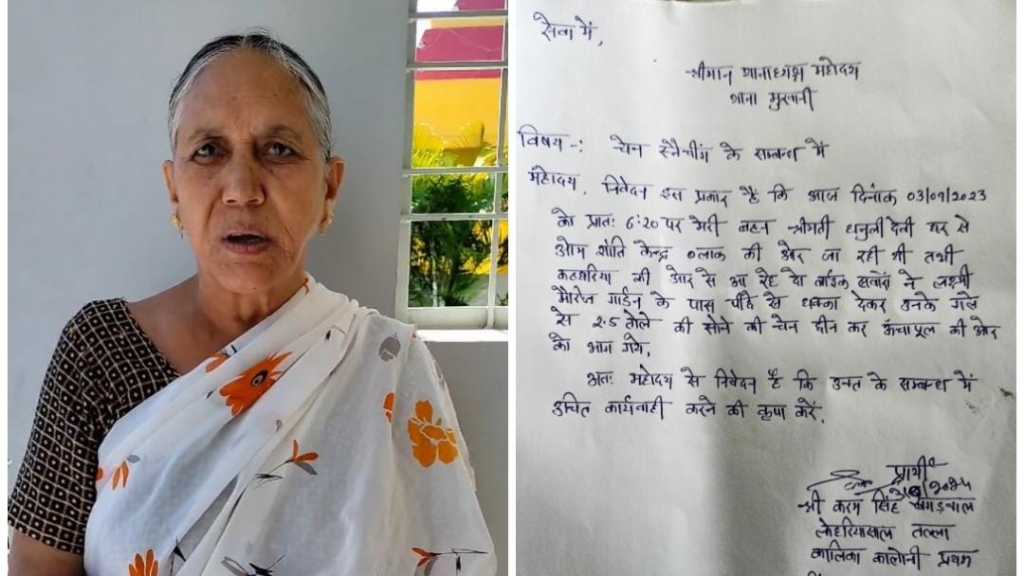 सेवा में,
श्रीमान थानाध्यक्ष महोदय
थाना मुखानी
विषय -: चेन स्नैचींग के सम्बन्ध में
महोदय, निवेदन इस प्रकार है कि आज दिनांक 03/09/2023
को प्रातः 6:20 पर मेरी बहन श्रीमती धनुली देवी घर से
ओम शांति केन्द्र वलाक की ओर जा रही थी तभी
कठघरिया की ओर से आ रहे दो बाईक सवारों ने लक्ष्मी
मैरिज गार्डन के पास पीछे से धक्का देकर उनके गले
से 2.5 तोले की सोने की चेन छीन कर ऊंचापूल की ओर
को भाग गये.
अतः महोदय से निवेदन है कि उक्त के सम्बन्ध में
उचित कार्यवाही करने की कृपा करें.
प्रार्थी
श्री करम सिंह
लोहरियासाल तल्ला
कालिका कालोनी प्रथम